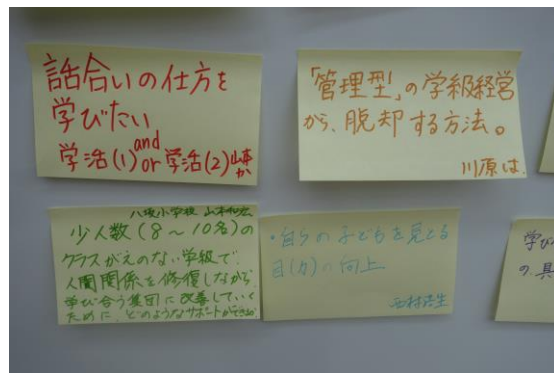 話合いの仕方を
学びたい
and
学活(1) or 学活(2) 山本
か
「管理型」の学級経営
から、脱却する方法。
川原は.
八坂小学校 山本和宏
少人数(8〜10名)の
クラスがえのない学級で、
人間関係を修復しながら
学び合う集団に改善していく
ために、どのようなサポートができるか
・自らの子どもを見とる
目(力)の向上
西村浩生
学び
の具